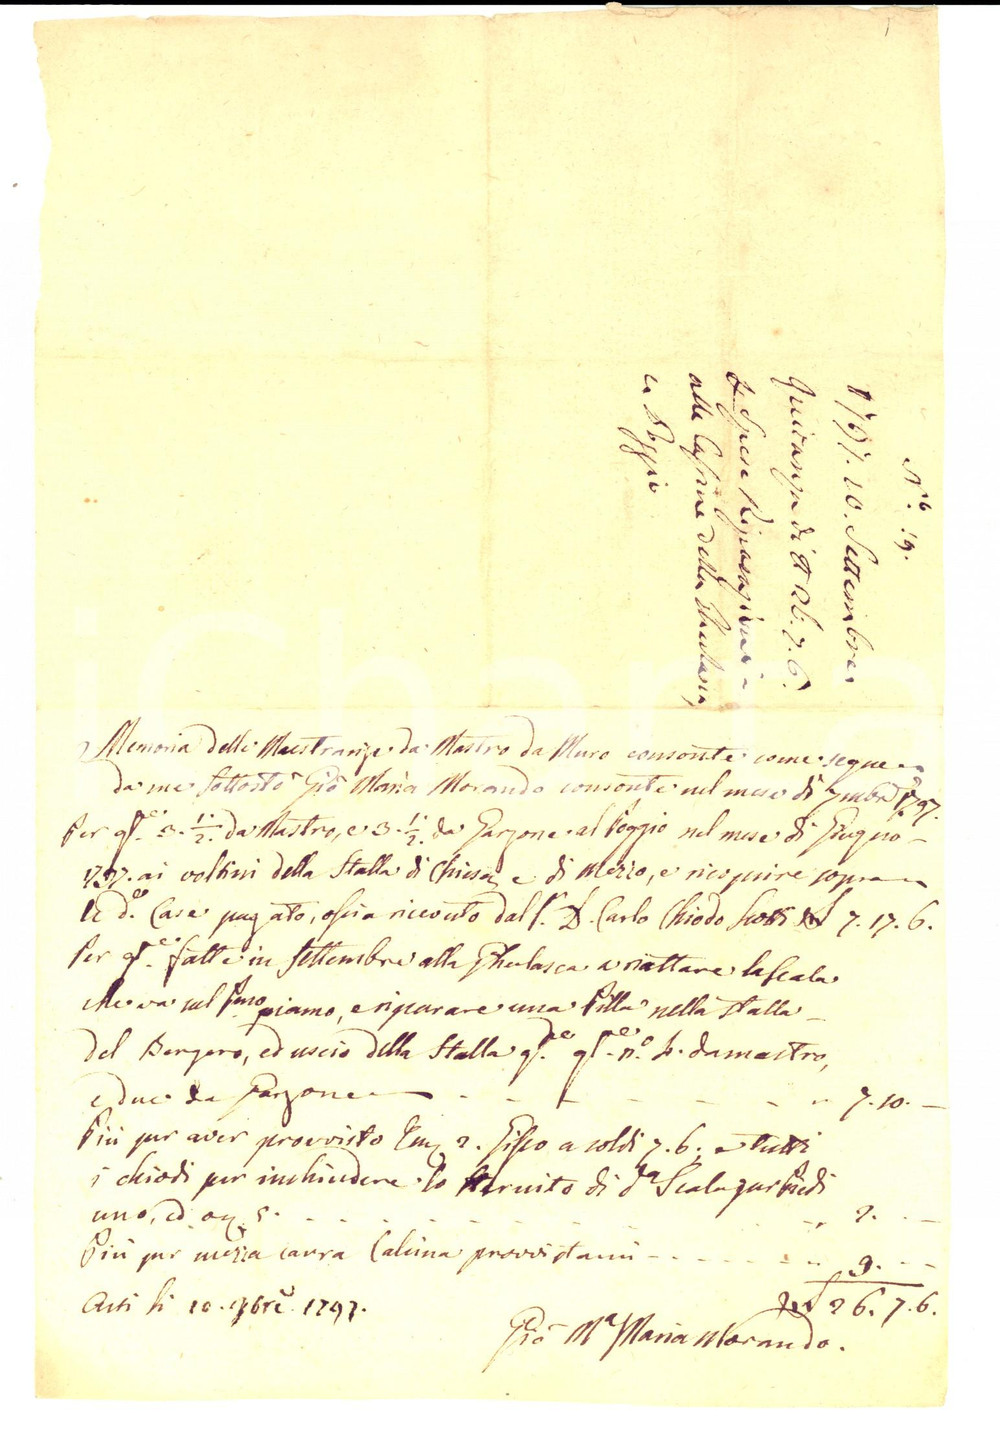 N.º 19.
1797. 10. Settembre
Quitanza di 26. 7. 6.
Spese Riparazioni
alle Cassine della
e Poggio
Memoria delle Maestranze da Mastro da Muro consonte come segue
da me sottosto Gio Maria Morando consonte nel mese di 7mbre 1797.
Per 3. 1/2. da Mastro, e 3. 1/2. da Garzone al Poggio nel mese di Giugno
1797. ai voltini della Stalla di Chiesa, e di Mezzo, e ricoprire sopra
le d.e Case pagato, ossia ricevuto dal S. D. Carlo Chiodo 7. 17. 6.
Per fatte in Settembre alla a riattare la Scala
che va sul piano, e riparare una Pilla nella stalla
del Bergero, ed uscio della Stalla n.o 4. da mastro,
e due da Garzone - - - - - 7. 10. -
Più per aver provvisto 2. Gisso a soldi 7. 6., e tutti
i chiodi per inchiudere lo sternito di d.a Scala Piedi
uno, ed on. 5. - - - - - 2. - -
Più per mezza carra Calcina provvista - - - - - 9. - -
26. 7. 6.
Asti li 10. 7bre 1797.
Gio M.a Maria Morando.